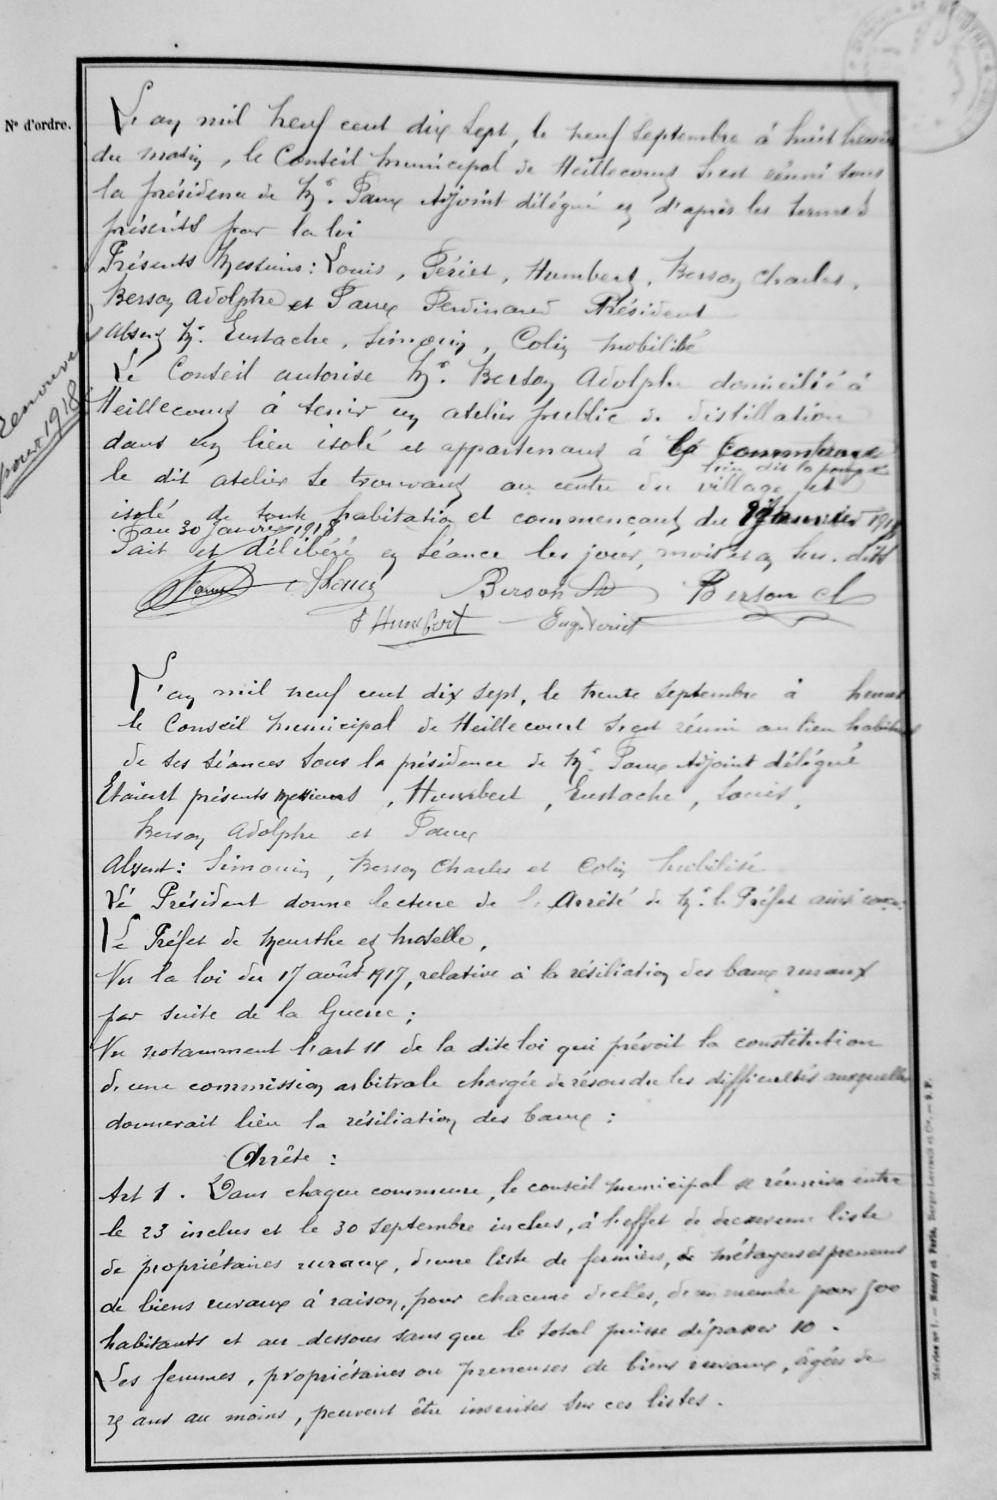 N° d'ordre.
L'an mil neuf cent dix sept, le neuf Septembre à huit heures
du matin, le Conseil municipal de Heillecourt s'est réuni sous
la présidence de Mr. Paux Adjoint délégué et d'après les termes
présents par la loi
Présents Messieurs: Louis, Périet, Humbert, Berson Charles,
Berson Adolphe et Paux Ferdinand Président
Absent Mr. Eustache, Simonin, Colin mobilisé
Le Conseil autorise Mr. Berson Adolphe domicilié à
Heillecourt à tenir un atelier public de distillation
dans un lieu isolé et appartenant à la Commune
lieu dit la pompe
le dit atelier se trouvant au centre du village et
isolé de toute habitation et commençant du janvier 1918
au 30 Janvier 1918
Fait et délibéré en séance les jour, mois et an sus-dits
Renouvelé
pour 1918
Berson Ad Berson Ch
Humbert Eug. Périet
L'an mil neuf cent dix sept, le trente Septembre à heures
le Conseil municipal de Heillecourt s'est réuni au lieu habituel
de ses séances sous la présidence de Mr. Paux Adjoint délégué
Etaient présents Messieurs, Humbert, Eustache, Louis,
Berson Adolphe et Paux
Absent: Simonin, Berson Charles et Colin mobilisé
Le Président donne lecture de l'Arrêté de Mr. le Préfet ainsi conçu:
Le Préfet de Meurthe et Moselle,
Vu la loi du 17 août 1917, relative à la résiliation des baux ruraux
par suite de la Guerre;
Vu notamment l'art 11 de la dite loi qui prévoit la constitution
de une commission arbitrale chargée de résoudre les difficultés auxquelles
donnerait lieu la résiliation des baux:
Arrête:
Art 1. Dans chaque commune, le conseil municipal se réunira entre
le 23 inclus et le 30 Septembre inclus, à l'effet de dresser une liste
de propriétaires ruraux, d'une liste de fermiers, de métayers et preneurs
de biens ruraux à raison, pour chacune d'elles, d'un membre pour 500
habitants et au dessous sans que le total puisse dépasser 10.
Les femmes, propriétaires ou preneuses de biens ruraux, âgées de
25 ans au moins, peuvent être inscrites sur ces listes.
Nancy et Paris, Berger-Levrault et Cie.